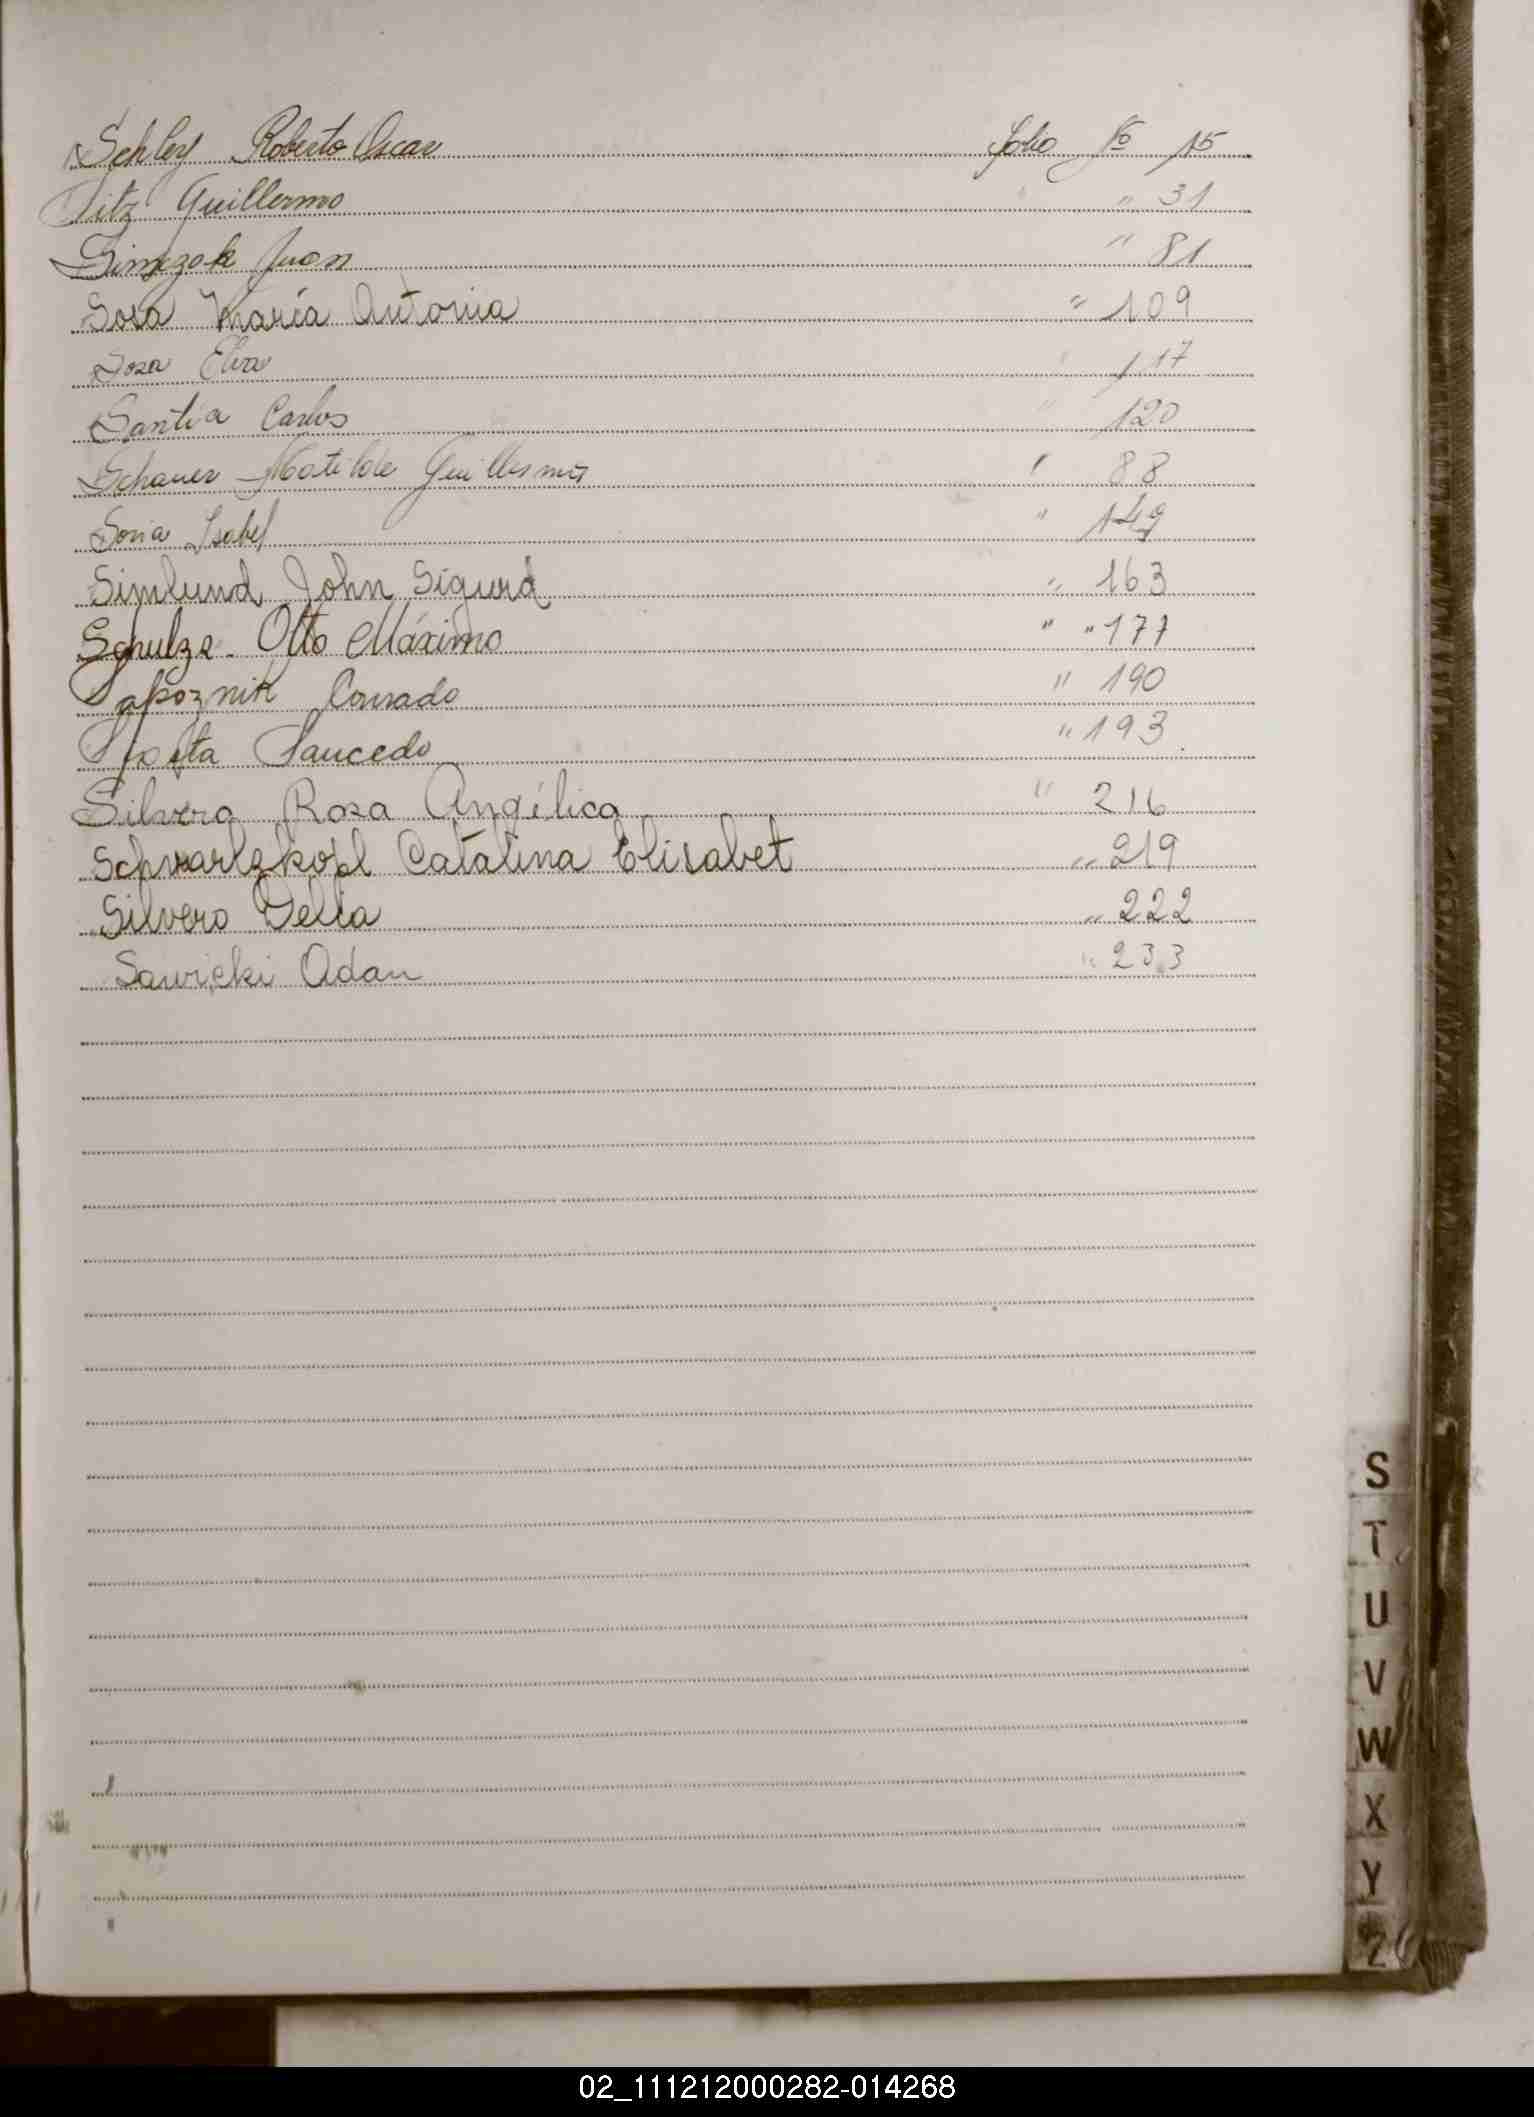 Schley Roberto Oscar Folio Nº 15
Sitz Guillermo " 31
Juan " 81
Sosa María Antonia " 109
Sosa Elva " 117
Santia Carlos " 120
Schauer Matilde " 88
Soria Isabel " 149
Simlund John Sigurd " 163
Schulze Otto Máximo " " 177
Sapoznik Conrado " 190
Saucedo " 193
Silvera Rosa Angélica " 216
Schwartzkopf Catalina Elisabet " 219
Silvero Delia " 222
Sawicki Adan " 233
S
T
U
V
W
X
Y
Z
02_111212000282-014268